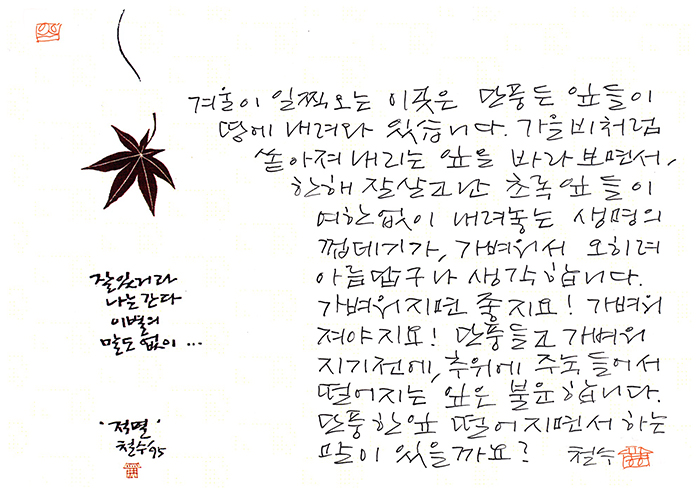 겨울이 일찍오는 이곳은 단풍든 잎들이
땅에 내려와 있습니다. 가을비처럼
쏟아져내리는 잎을 바라보면서,
한해 잘살고난 초록잎들이
여한없이 내려놓는 생명의
껍데기가, 가벼워서 오히려
아름답구나 생각합니다.
가벼워지면 좋지요! 가벼워
져야지요! 단풍들고 가벼워
지기전에, 추위에 주눅들어서
떨어지는 잎은 불운합니다.
단풍한잎 떨어지면서 하는
말이 있을까요? 철수
잘있거라
나는간다
이별의
말도 없이 ...
'적멸'
철수 '95